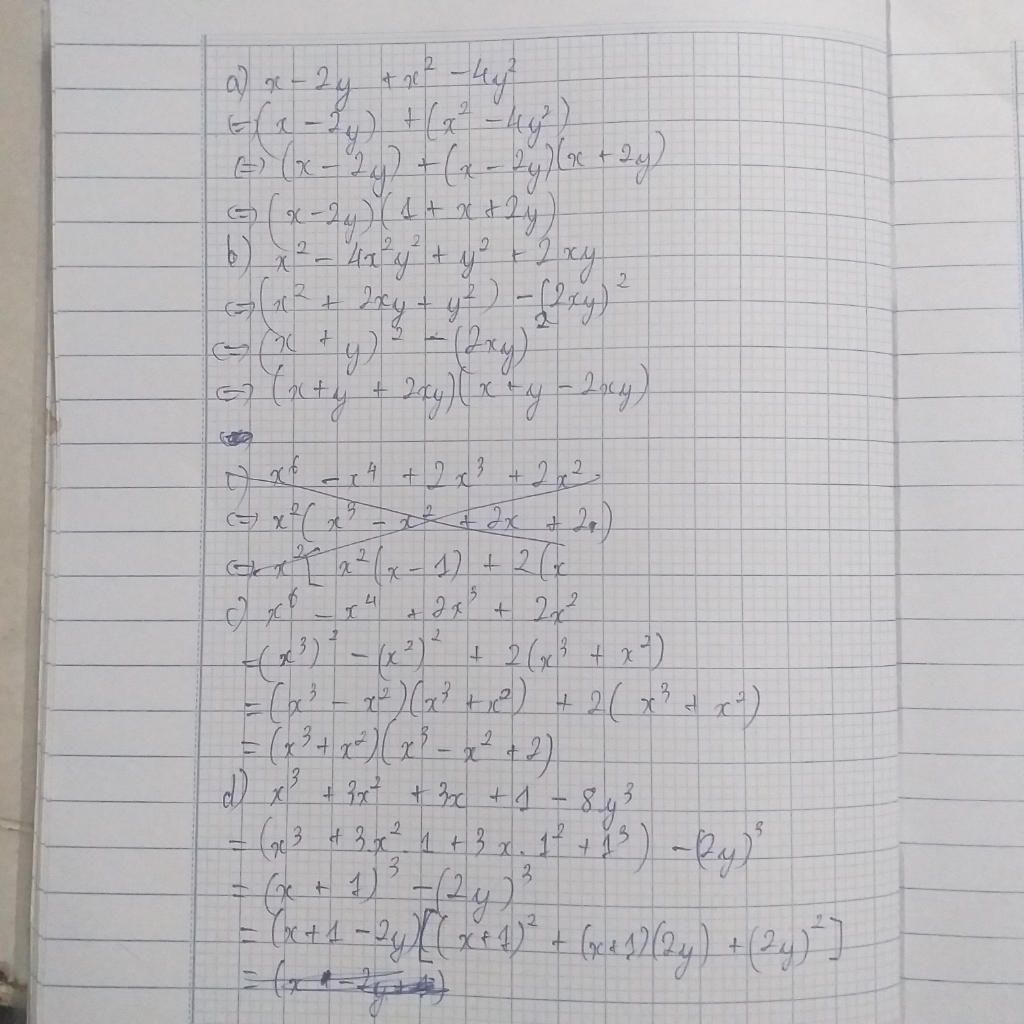 a) x - 2y + x² - 4y²
⇔ (x - 2y) + (x² - 4y²)
⇔ (x - 2y) + (x - 2y)(x + 2y)
⇔ (x - 2y)(1 + x + 2y)
b) x² - 4x²y² + y² + 2xy
⇔ (x² + 2xy + y²) - (2xy)²
⇔ (x + y)² - (2xy)²
⇔ (x + y + 2xy)(x + y - 2xy)
c) x⁶ - x⁴ + 2x³ + 2x²
⇔ x²(x³ - x² + 2x + 2)
⇔ x²[x²(x - 1) + 2(x
c) x⁶ - x⁴ + 2x³ + 2x²
= (x³)² - (x²)² + 2(x³ + x²)
= (x³ - x²)(x³ + x²) + 2(x³ + x²)
= (x³ + x²)(x³ - x² + 2)
d) x³ + 3x² + 3x + 1 - 8y³
= (x³ + 3x².1 + 3x.1² + 1³) - (2y)³
= (x + 1)³ - (2y)³
= (x + 1 - 2y)[(x + 1)² + (x + 1)(2y) + (2y)²]
= (x - 2y +